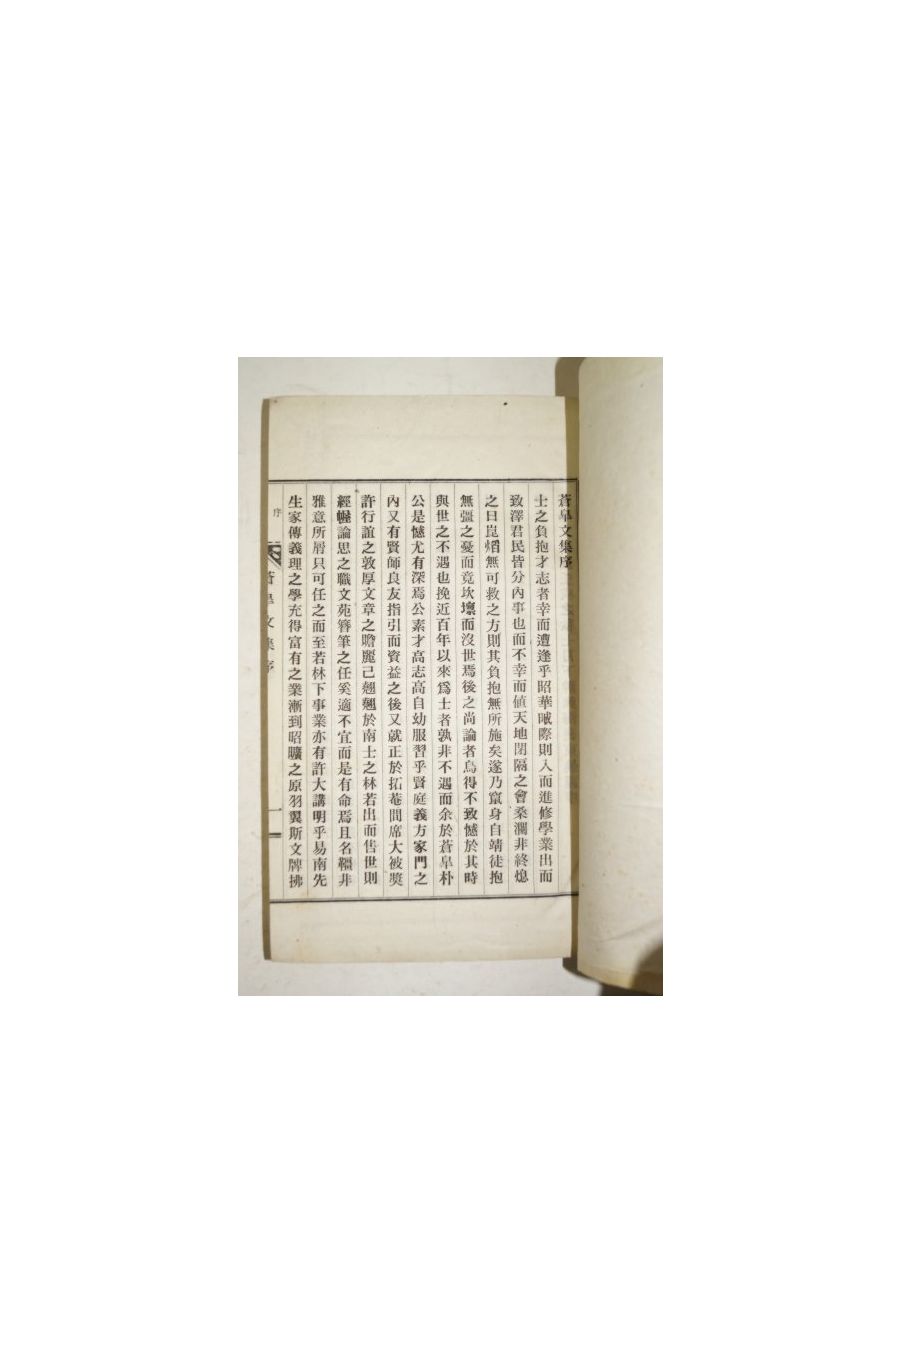 蒼皐文集序
士之負抱才志者幸而遭逢乎昭華晠際則入而進修學業出而
致澤君民皆分內事也而不幸而値天地閉隔之會桑瀾非終熄
之日崑熖無可救之方則其負抱無所施矣遂乃竄身自靖徒抱
無彊之憂而竟坎壈而沒世焉後之尚論者烏得不致憾於其時
與世之不遇也挽近百年以來爲士者孰非不遇而余於蒼皐朴
公是憾尤有深焉公素才高志高自幼服習乎賢庭義方家門之
內又有賢師良友指引而資益之後又就正於拓菴間席大被奬
許行誼之敦厚文章之贍麗己翹翹於南士之林若出而售世則
經幄論思之職文苑簪筆之任奚適不宜而是有命焉且名韁非
雅意所屑只可任之而至若林下事業亦有許大講明乎易南先
生家傳義理之學充得富有之業漸到昭曠之原羽翼斯文牌拂
序
蒼皐文集序
一